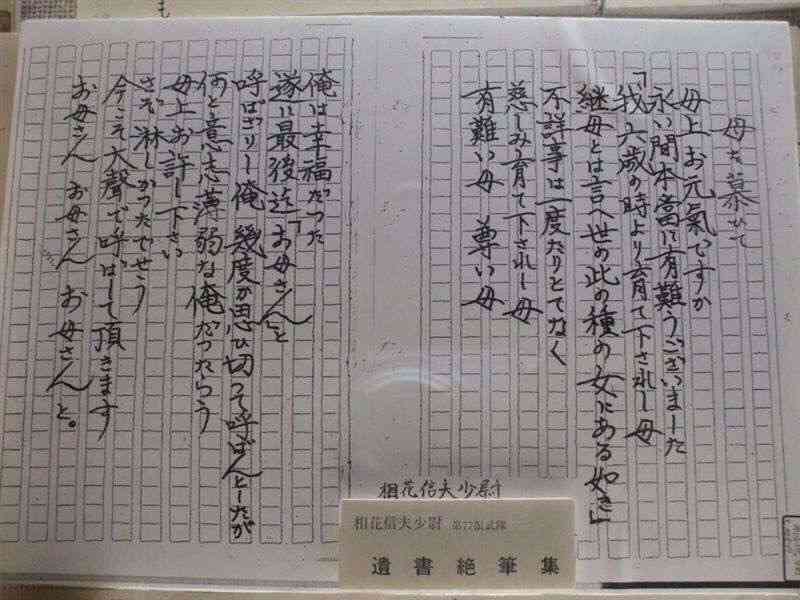 母を慕ひて
母上お元氣ですか
永い間本當に有難うございました
「我六歳の時より育て下されし母
継母とは言へ世の此の種の女にある如き」
不祥事は一度たりとてなく
慈しみ育て下されし母
有難い母　尊い母
俺は幸福だつた
遂に最後迄「お母さん」と
呼ばざりし俺　幾度か思ひ切つて呼ばんとしたが
何と意志薄弱な俺だつたらう
母上お許し下さい
さぞ淋しかつたでせう
今こそ大聲で呼ばして頂きます
お母さん　お母さん　お母さんと。
相花信夫少尉
相花信夫少尉　第77振武隊
遺書絶筆集
も